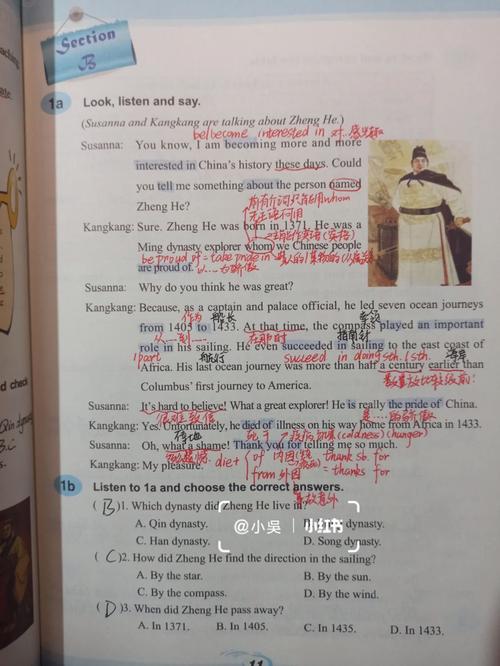 Section
B
1a Look, listen and say.
(Susanna and Kangkang are talking about Zheng He.)
be/become interested in 对…感兴趣
Susanna: You know, I am becoming more and more
interested in China's history these days. Could
you tell me something about the person named
Zheng He?
Kangkang: Sure. Zheng He was born in 1371. He was a
Ming dynasty explorer whom we Chinese people
be proud of = take pride in
are proud of. 以…为骄傲
Susanna: Why do you think he was great?
Kangkang: Because, as a captain and palace official, he led seven ocean journeys
作为 船长
from 1405 to 1433. At that time, the compass played an important
从…到… 在那时 指南针
role in his sailing. He even succeeded in sailing to the east coast of
part 航行 succeed in doing sth. / sth. 海岸
Africa. His last ocean journey was more than half a century earlier than
Columbus' first journey to America.
Susanna: It's hard to believe! What a great explorer! He is really the pride of China.
很难致信 是…的骄傲
Kangkang: Yes! Unfortunately, he died of illness on his way home from Africa in 1433.
Susanna: Oh, what a shame! Thank you for telling me so much.
Kangkang: My pleasure.
die + of 内因 thank sb. for
from 外因 = thanks for
1b Listen to 1a and choose the correct answers.
(B) 1. Which dynasty did Zheng He live in?
A. Qin dynasty. dynasty.
C. Han dynasty. D. Song dynasty.
@小吳 | 小红书
(C) 2. How did Zheng He find the direction in the sailing?
A. By the star. B. By the sun.
C. By the compass. D. By the wind.
(D) 3. When did Zheng He pass away?
A. In 1371. B. In 1405. C. In 1435. D. In 1433.
11